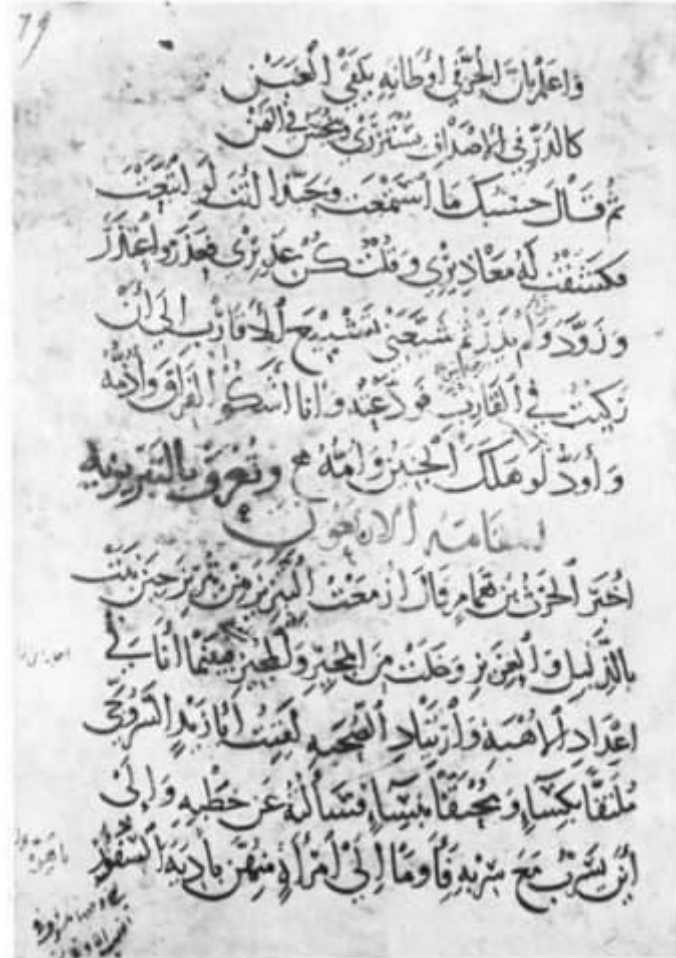 واعلم بان الحر في اوطانه يلقى الغبن
كالدر في الاصداف يستزرى ويبخس في الثمن
ثم قال حسبك ما استمعت وحبذا انت لو اتبعت
فكشفت له معاذيري وقلت كن عذيري فعذر واعتذر
وزود ولم يذر ثم شيعني تشييع الاقارب الى ان
ركبت في القارب فودعته وانا اشكو الفراق واذمه
واود لو هلك الجنين وامه وتعرف بالتبريزية
المقامة الاربعون
اخبر الحرث بن همام قال ازمعت التبريز من تبريز حين نبت
بالذليل والعزيز وخلت من المجير والمجيز فبينما انا في
اعداد الاهبة وارتياد الصحبة لقيت ابا زيد السروجي
ملتفا بكساء ومحتفا بنساء فسالته عن خطبه والى
اين يسرب مع سربه فاوما الى امراة منهن بادية السفور